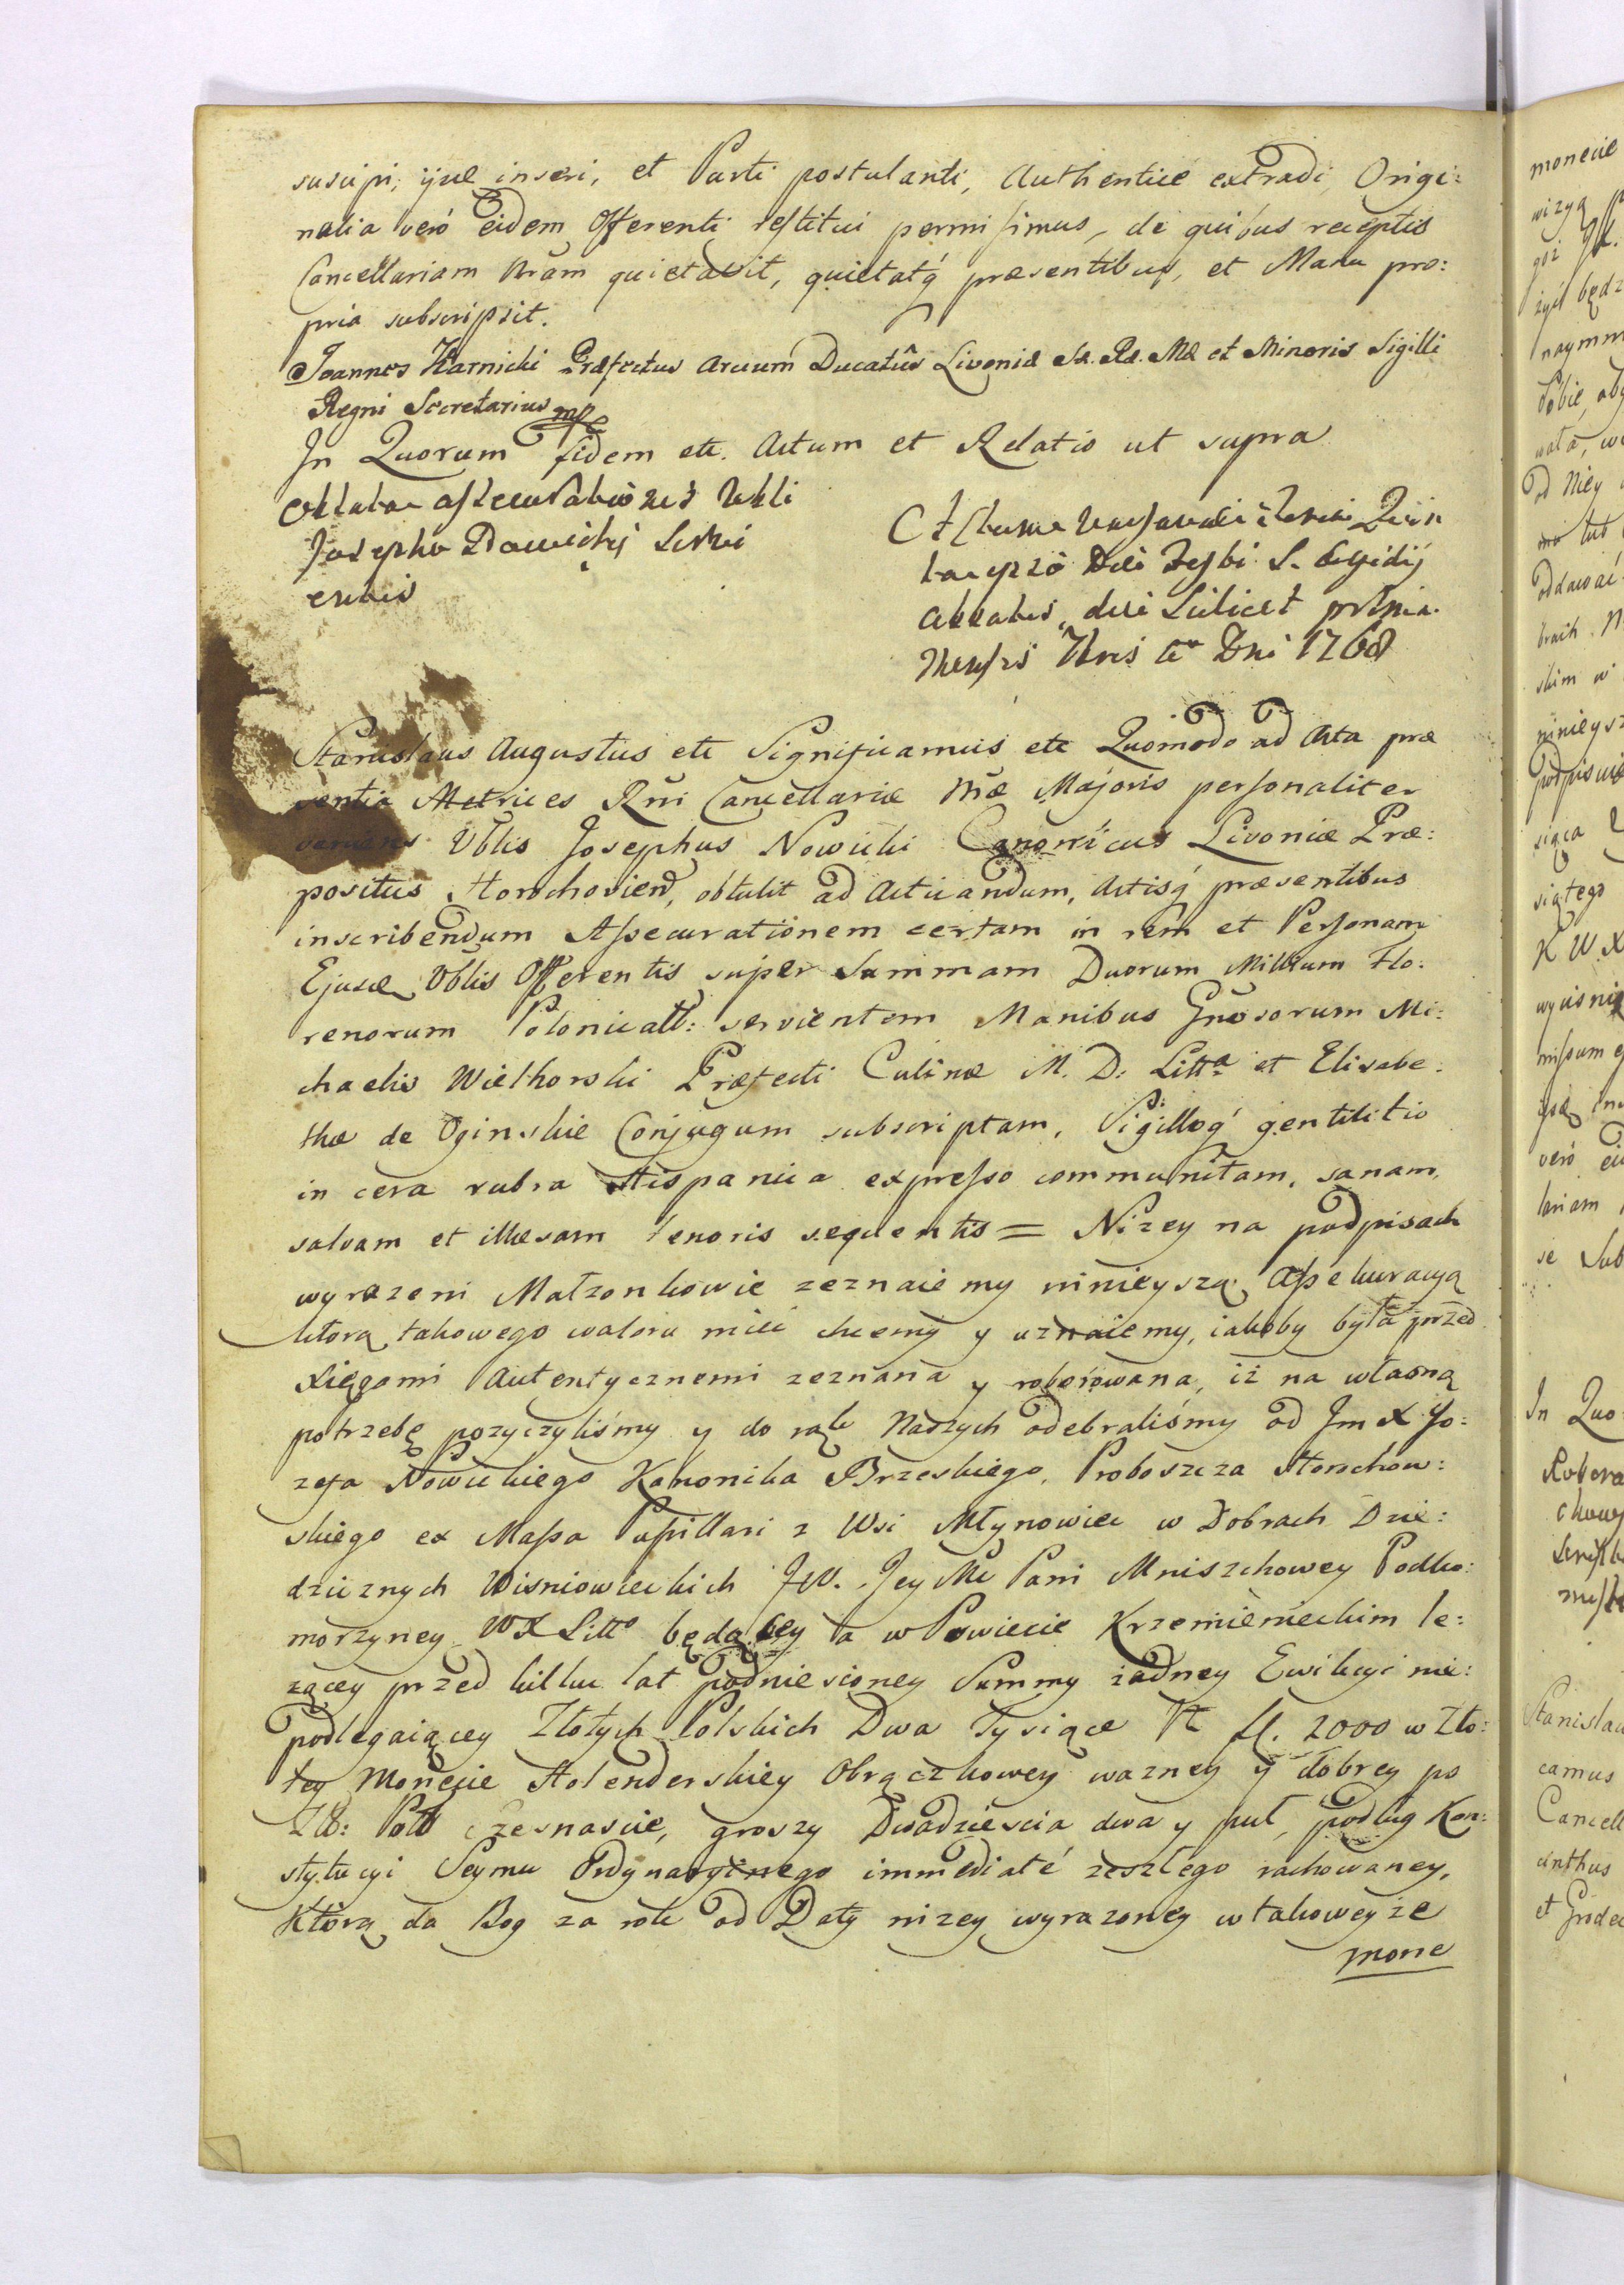 suscipi, ijsq inseri, et Parti postulanti, Authenticè extradi, Origi:
nalia verò eidem Offerenti restitui permisimus, de quibus receptis
Cancellariam Nram quietavit, quietatq́ praesentibus, et Manu pro:
pria subscripsit.
Joannes Karnicki Præfectus Arcium Ducatûs Livoniæ Sæ. Ræ. Mæ et Minoris Sigilli
Regni Secretarius mp
In Quorum fidem etc. Actum et Relatio ut supra
Oblata Assecurationis Vbli
Josepho Nowicki Servi
entis
Actum Varsaviæ Feria Quin
ta ipso Die Festi S. Egidij
Abbatis, die Scilicet prima
Mensis 7bris Ao Dni 1768
Stanislaus Augustus etc Significamus etc Quomodo ad Acta præ
sentia Metrices Rñi Cancellariæ Nræ Majoris personaliter
veniens Vblis Josephus Nowicki Canonicus Livoniæ Præ:
positus Horochovien, obtulit ad Acticandum, Actisq́ præsentibus
inscribendum Assecurationem certam in rem et Personam
Ejusd Vblis Offerentis super Summam Duorum Millium Flo:
renorum Polonicall: servientem Manibus Gnosorum Mi:
chaelis Wielhorski Præfecti Culinæ M. D. Litta et Elisabe:
thæ de Oginskie Conjugum subscriptam, Sigilloq́ gentilitio
in cera rubra Hispanica expresso communitam, sanam,
salvam et illæsam tenoris sequentis = Nizey na podpisach
wyrazeni Małzonkowie zeznaiemy ninieyszą Assekuracyą
ktorą takowego waloru mieć chcemy y uznaiemy, iakoby była przed
Xięgami Autentycznemi zeznana y roborowana, iż na własną
potrzebę pozyczyliśmy y do rąk Naszych odebraliśmy od Jm X Jo:
zefa Nowickiego Kanonika Brzeskiego, Proboszcza Horochow:
skiego ex Massa Pupillari z Wsi Młynowiec w Dobrach Dzie:
dzicznych Wisniowieckich JW. Jey Mc Pani Mniszchowey Podko:
morzyney WX Litto będącey a w Powiecie Krzemienieckim le:
zącey przed kilku lat podniesioney Summy żadney Ewikcyi nie:
podlegaiącey Złotych Polskich Dwa Tysiące Nro fl. 2000 w Zło:
tey Monecie Holenderskiey Obrączkowey wazney y dobrey po
Zło: Poll szesnascie, groszy Dwadziescia dwa y puł, podług Kon:
stytucyi Seymu Ordynaryinego immediatè zeszłego rachowaney,
Ktorą da Bog za rok od Daty nizey wyrazoney w takoweyże
mone